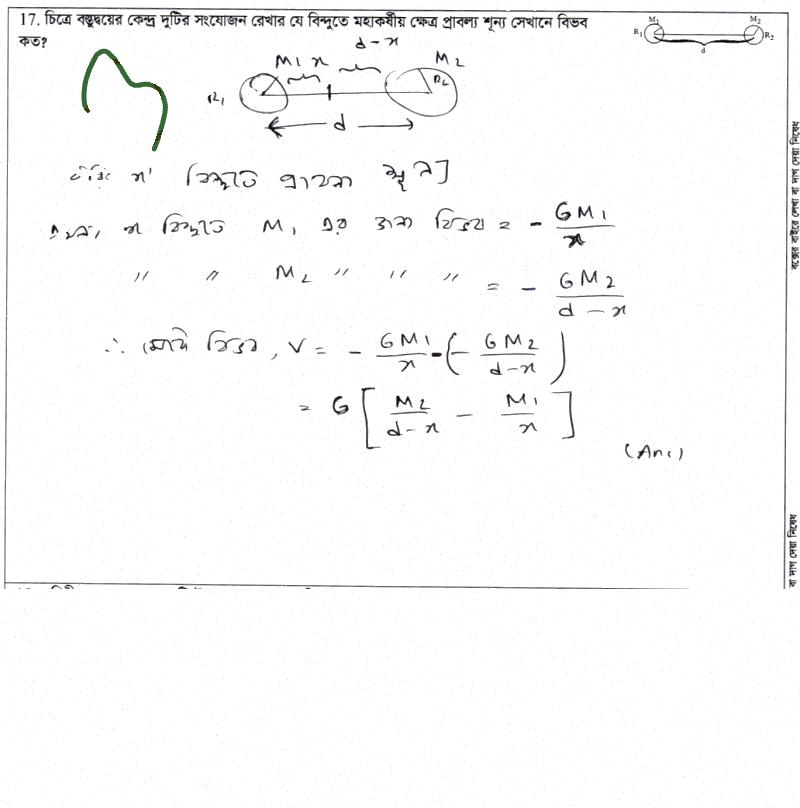 17. চিত্রে বস্তুদ্বয়ের কেন্দ্র দুটির সংযোজন রেখার যে বিন্দুতে মহাকর্ষীয় ক্ষেত্র প্রাবল্য শূন্য সেখানে বিভব
কত?
M₁ M₂
R₁ R₂
d
d-x
M₁ x M₂
R₁ R₂
d
ধরি x বিন্দুতে প্রাবল্য শূন্য]
এখন, x বিন্দুতে M₁ এর জন্য বিভব = - GM₁/x
" " M₂ " " " = - GM₂/(d-x)
∴ মোট বিভব, V = - GM₁/x - (- GM₂/(d-x))
= G [M₂/(d-x) - M₁/x]
(Ans)
বক্সের বাইরে লেখা বা দাগ দেয়া নিষেধ
বা দাগ দেয়া নিষেধ